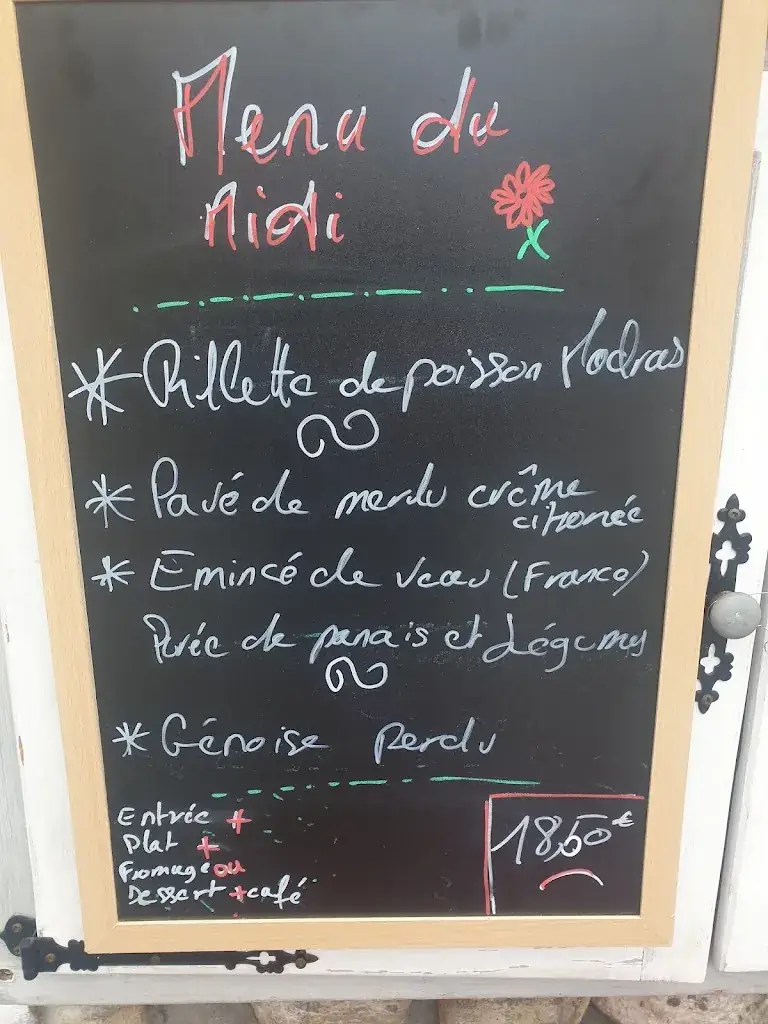 Menu du
Midi
* Rillette de poisson Madras
* Pavé de merlu crême
citronée
* Emincé de veau (France)
Purée de panais et Légumes
* Génoise Perdu
Entrée +
Plat +
Fromage ou
Dessert + café
18,50€